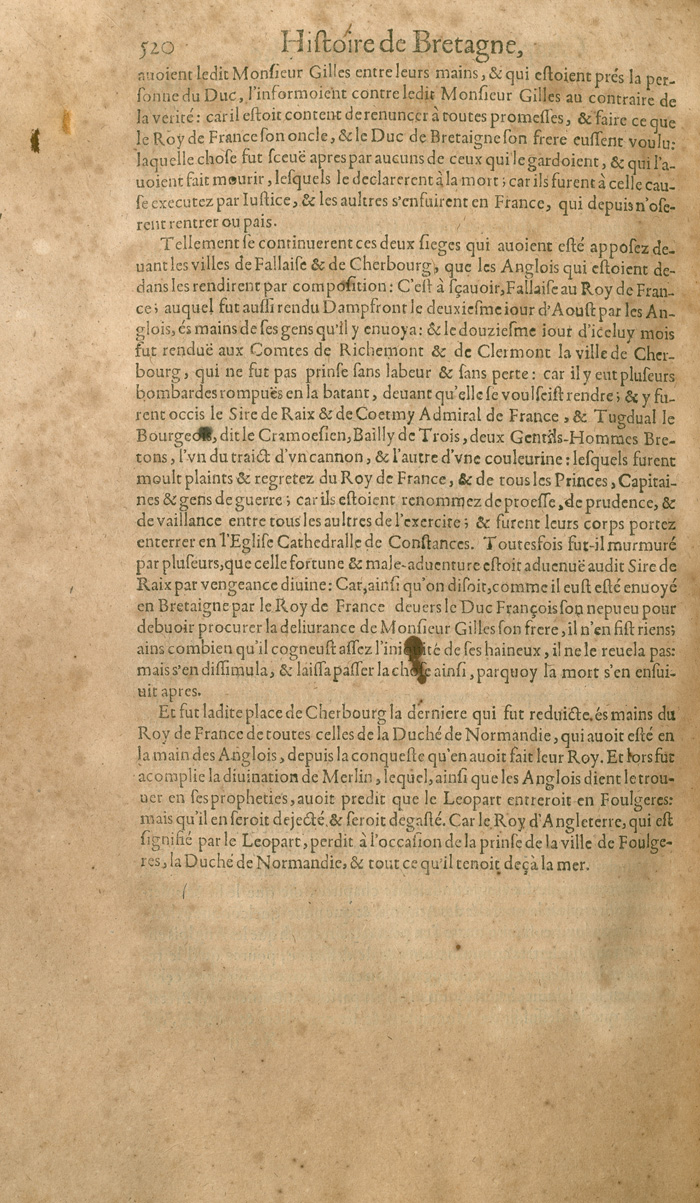 520 Histoire de Bretagne,
auoient ledit Monsieur Gilles entre leurs mains, & qui estoient prés la per-
sonne du Duc, l'informoient contre ledit Monsieur Gilles au contraire de
la verité: car il estoit content de renuncer à toutes promesses, & faire ce que
le Roy de France son oncle, & le Duc de Bretaigne son frere eussent voulu:
laquelle chose fut sceuë apres par aucuns de ceux qui le gardoient, & qui l'a-
uoient fait mourir, lesquels le declarerent à la mort; car ils furent à celle cau-
se executez par Iustice, & les aultres s'enfuirent en France, qui depuis n'ose-
rent rentrer ou pais.
Tellement se continuerent ces deux sieges qui auoient esté apposez de-
uant les villes de Fallaise & de Cherbourg, que les Anglois qui estoient de-
dans les rendirent par composition: C'est à sçauoir, Fallaise au Roy de Fran-
ce; auquel fut aussi rendu Dampfront le deuxiesme iour d'Aoust par les An-
glois, és mains de ses gens qu'il y enuoya: & le douziesme iour d'iceluy mois
fut renduë aux Comtes de Richemont & de Clermont la ville de Cher-
bourg, qui ne fut pas prinse sans labeur & sans perte: car il y eut plusieurs
bombardes rompuës en la batant, deuant qu'elle se voulseist rendre; & y fu-
rent occis le Sire de Raix & de Coetmy Admiral de France, & Tugdual le
Bourgeois, dit le Cramoesien, Bailly de Trois, deux Gentils-Hommes Bre-
tons, l'vn du traict d'vn cannon, & l'autre d'vne couleurine: lesquels furent
moult plaints & regretez du Roy de France, & de tous les Princes, Capitai-
nes & gens de guerre; car ils estoient renommez de proesse, de prudence, &
de vaillance entre tous les aultres de l'exercite; & furent leurs corps portez
enterrer en l'Eglise Cathedralle de Constances. Toutesfois fut-il murmuré
par plusieurs, que celle fortune & male-aduenture estoit aduenuë audit Sire de
Raix par vengeance diuine: Car, ainsi qu'on disoit, comme il eust esté enuoyé
en Bretaigne par le Roy de France deuers le Duc François son nepueu pour
debuoir procurer la deliurance de Monsieur Gilles son frere, il n'en fist riens;
ains combien qu'il cogneust assez l'iniquité de ses haineux, il ne le reuela pas:
mais s'en dissimula, & laissa passer la chose ainsi, parquoy la mort s'en ensui-
uit apres.
Et fut ladite place de Cherbourg la derniere qui fut reduicte és mains du
Roy de France de toutes celles de la Duché de Normandie, qui auoit esté en
la main des Anglois, depuis la conqueste qu'en auoit fait leur Roy. Et lors fut
acomplie la diuination de Merlin, lequel, ainsi que les Anglois dient le trou-
uer en ses propheties, auoit predit que le Leopart entreroit en Foulgeres:
mais qu'il en seroit dejecté & seroit degasté. Car le Roy d'Angleterre, qui est
signifié par le Leopart, perdit à l'occasion de la prinse de la ville de Foulge-
res, la Duché de Normandie, & tout ce qu'il tenoit deçà la mer.